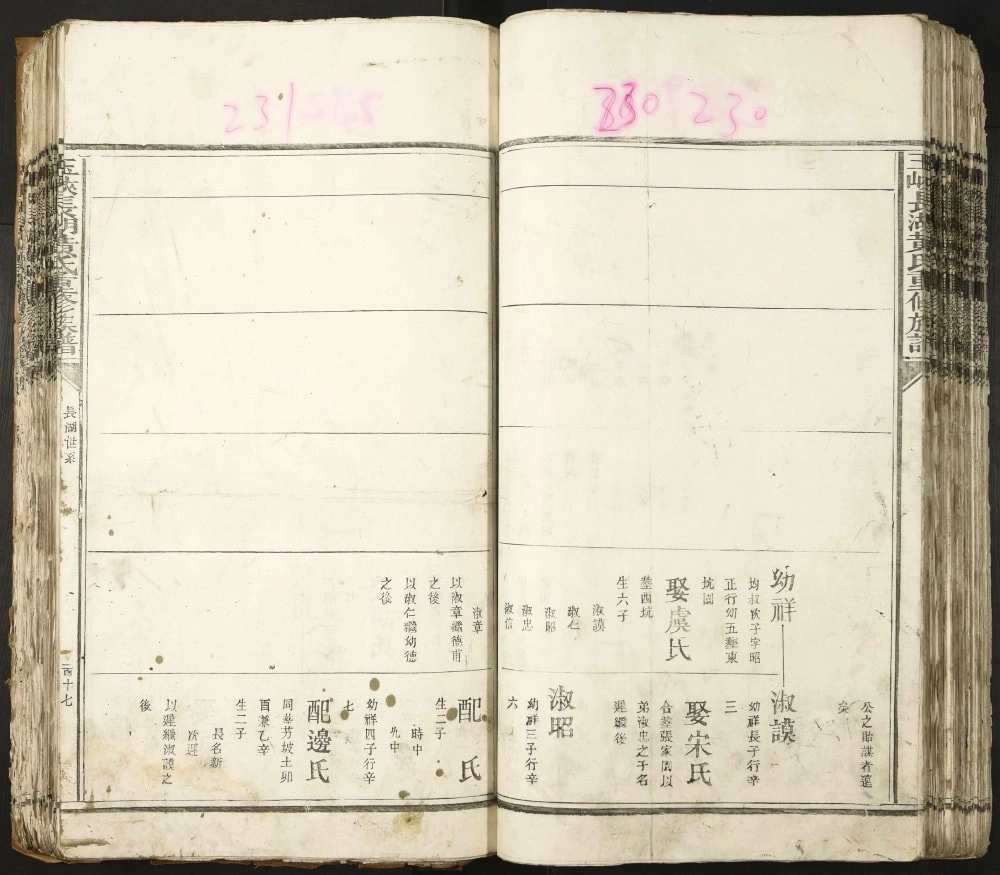 330 230
231
玉峽長湖黃氏重修族譜
公之貽謀者遠
矣
幼祥
均叔次子字昭
正行幼五塟東
坑園
娶虞氏
塟西坑
生六子
淑謨
淑仁
淑昭
淑忠
淑信
淑謨
幼祥長子行辛
三
娶宋氏
合塟張家園以
弟淑忠之子名
遲繼後
淑昭
幼祥三子行辛
六
淑章
以淑章繼德甫
之後
以淑仁繼幼德
之後
配 氏
生二子
時中
九中
幼祥四子行辛
七
配邊氏
同塟芳坡土卯
酉兼乙辛
生二子
長名新
次遲
以遲繼淑謨之
後
玉峽長湖黃氏重修族譜
長湖世系
百十七